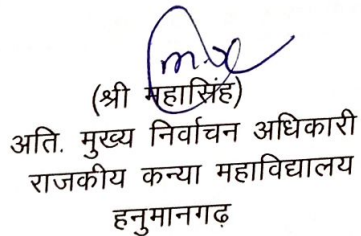 (श्री महासिंह)
अति. मुख्य निर्वाचन अधिकारी
राजकीय कन्या महाविद्यालय
हनुमानगढ़